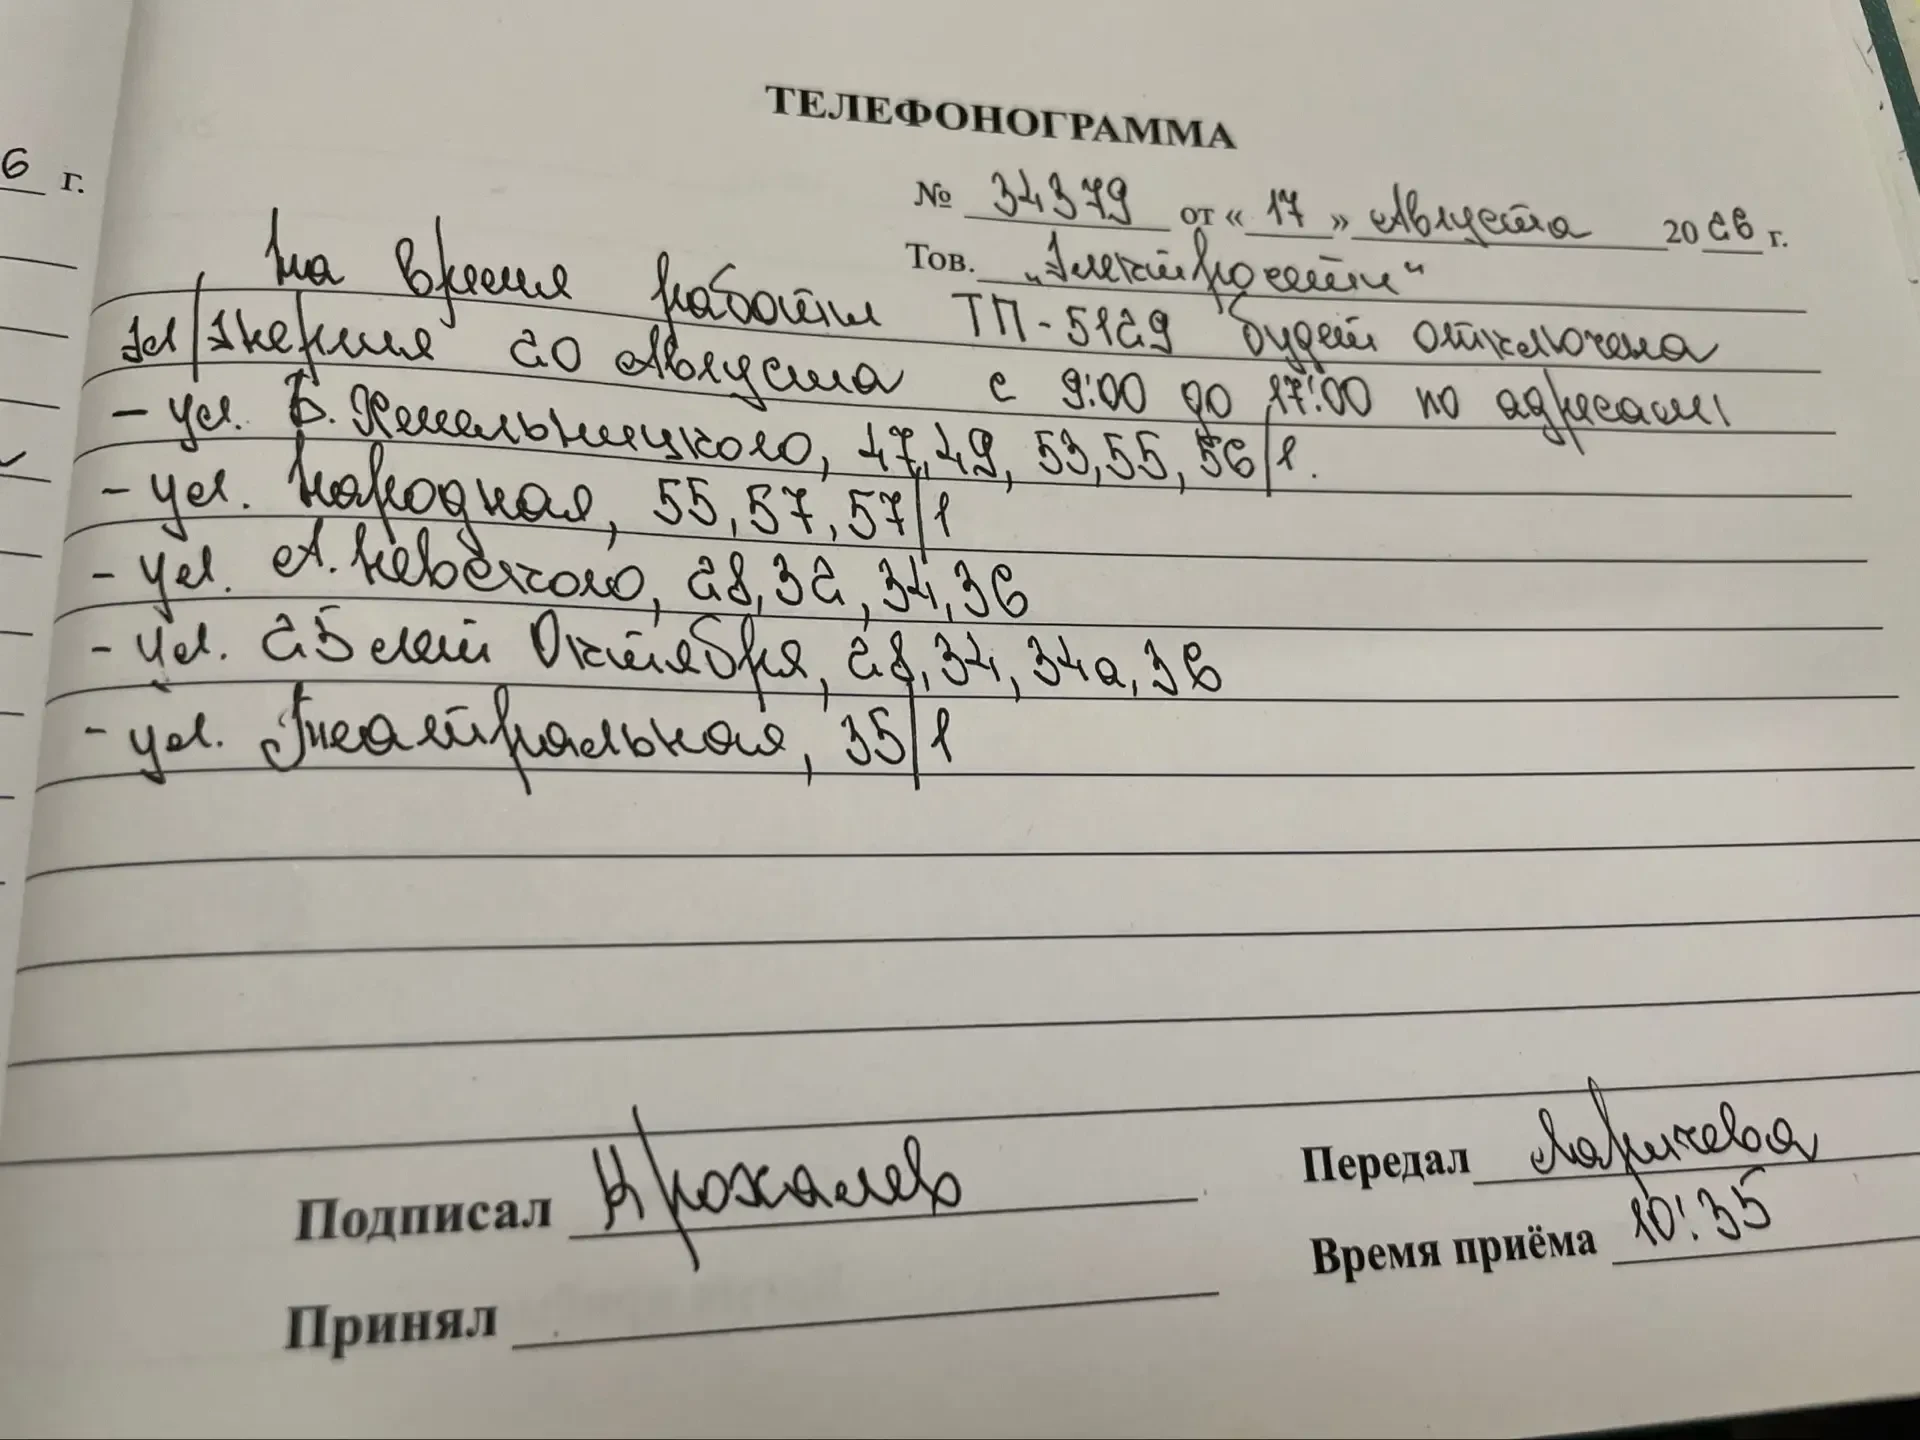 6 г.
ТЕЛЕФОНОГРАММА
№ 34379 от « 17 » Августа 2026 г.
Тов. "Электросети"
На время работы ТП-5129 будет отключена
эл/энергия 20 Августа с 9:00 до 17:00 по адресам:
- ул. Б. Хмельницкого, 47, 49, 53, 55, 56/1.
- ул. Народная, 55, 57, 57/1
- ул. А. Невского, 28, 32, 34, 36
- ул. 25 лет Октября, 28, 34, 34а, 36
- ул. Театральная, 35/1
Подписал Крохалев
Передал Ларичева
Время приёма 10:35
Принял